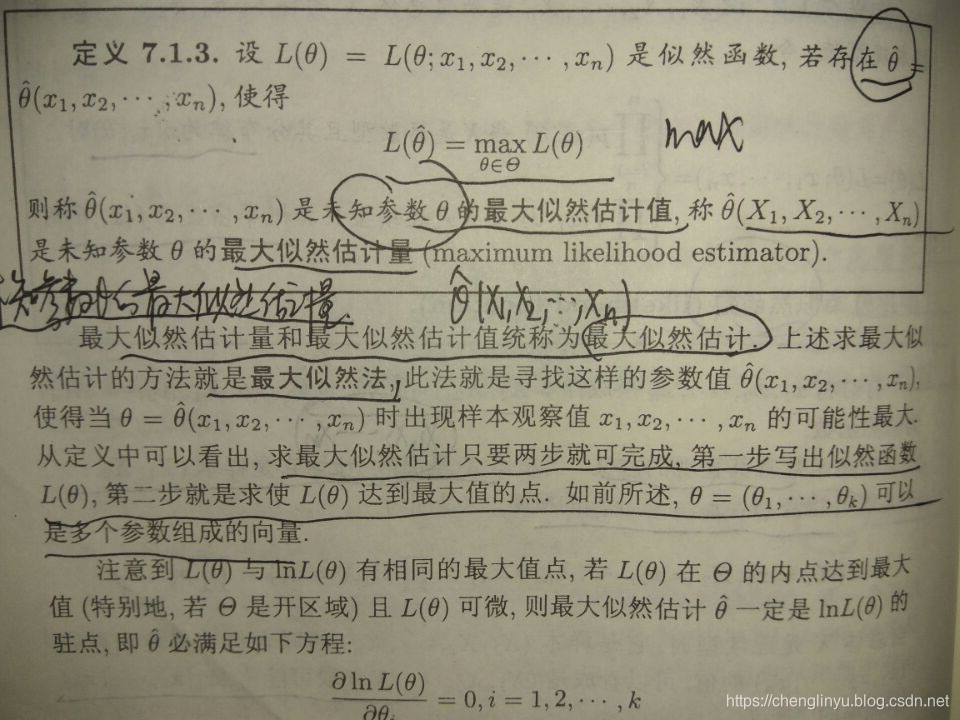 定义 7.1.3. 设 L(θ) = L(θ; x₁, x₂, ⋯ , xₙ) 是似然函数, 若存在 θ̂ =
θ̂(x₁, x₂, ⋯ , xₙ), 使得
L(θ̂) = max L(θ) max
θ∈Θ
则称 θ̂(x₁, x₂, ⋯ , xₙ) 是未知参数 θ 的最大似然估计值, 称 θ̂(X₁, X₂, ⋯ , Xₙ)
是未知参数 θ 的最大似然估计量 (maximum likelihood estimator).
知参数θ的最大似然估计量. θ̂(X₁,X₂,⋯,Xₙ)
最大似然估计量和最大似然估计值统称为最大似然估计. 上述求最大似
然估计的方法就是最大似然法, 此法就是寻找这样的参数值 θ̂(x₁, x₂, ⋯ , xₙ),
使得当 θ = θ̂(x₁, x₂, ⋯ , xₙ) 时出现样本观察值 x₁, x₂, ⋯ , xₙ 的可能性最大.
从定义中可以看出, 求最大似然估计只要两步就可完成, 第一步写出似然函数
L(θ), 第二步就是求使 L(θ) 达到最大值的点. 如前所述, θ = (θ₁, ⋯ , θₖ) 可以
是多个参数组成的向量.
注意到 L(θ) 与 lnL(θ) 有相同的最大值点, 若 L(θ) 在 Θ 的内点达到最大
值 (特别地, 若 Θ 是开区域) 且 L(θ) 可微, 则最大似然估计 θ̂ 一定是 lnL(θ) 的
驻点, 即 θ̂ 必满足如下方程:
∂ ln L(θ)
∂θᵢ = 0, i = 1, 2, ⋯ , k
https://chenglinyu.blog.csdn.net